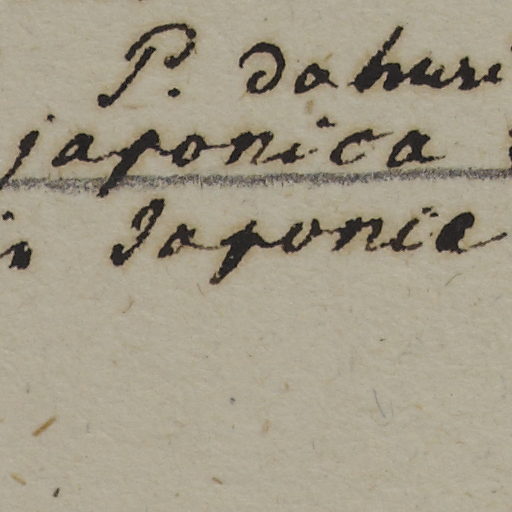 P. dahuri
japonica
in Japonia